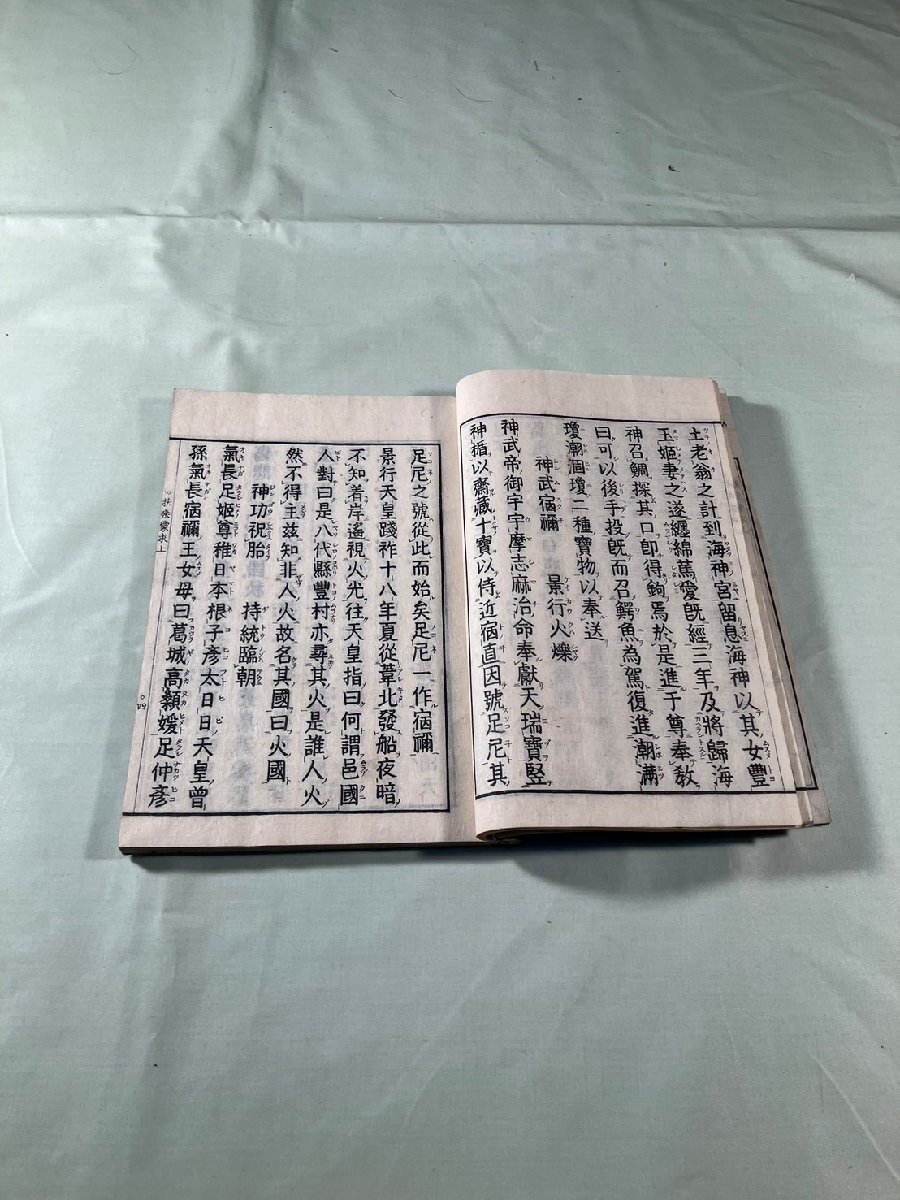 土老翁之計到海神宮留息海神以其女豐
玉姬妻之遂纏綿篤愛既經三年及將歸海
神召鯛探其口卽得鉤焉於是進于尊奉教
曰可以後手投既而召鰐魚為駕復進潮滿
瓊潮涸瓊二種寶物以奉送
神武宿禰 景行火爍
神武帝御宇宇摩志麻治命奉獻天瑞寶竪
神楯以齋藏十寶以侍近宿直因號足尼其
足尼之號從此而始矣足尼一作宿禰
景行天皇踐祚十八年夏從葦北發船夜暗
不知着岸遙視火光往天皇指曰何謂邑國
人對曰是八代縣豐村亦尋其火是誰人火
然不得主茲知非人火故名其國曰火國
神功祝胎 持統臨朝
氣長足姬尊稚日本根子彥太日日天皇曾
孫氣長宿禰王女母曰葛城高顙媛足仲彥
扶桑蒙求上
〇四